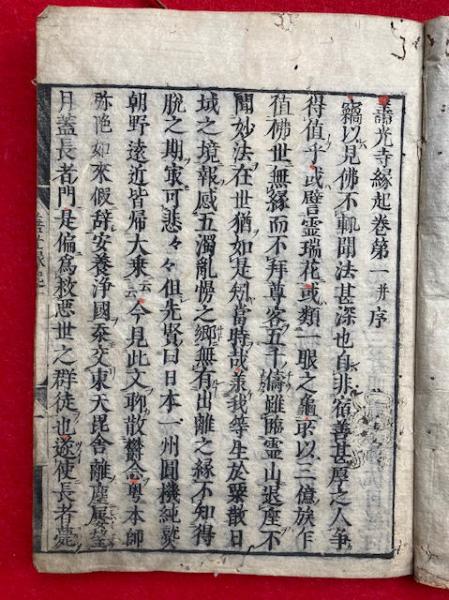 善光寺縁起巻第一并序
竊以見佛不輙聞法甚深也自非宿善甚厚之人爭
得值乎或譬霊瑞花或類一眼之龜所以三億族乍
值佛世無縁而不拜尊容五千儔雖臨霊山退座不
聞妙法在世猶如是况當時哉我等生於粟散
域之境報感五濁乱慢之郷無有出離之縁不知得
脱之期寔可悲々々但先賢曰日本一州圓機純熟
朝野遠近皆帰大乗云云今見此文聊散欝念本師
弥陁如来假辞安養浄國来交東天毘舎離塵屡望
月盖長者門是偏為救悪世之群徒也遂使長者